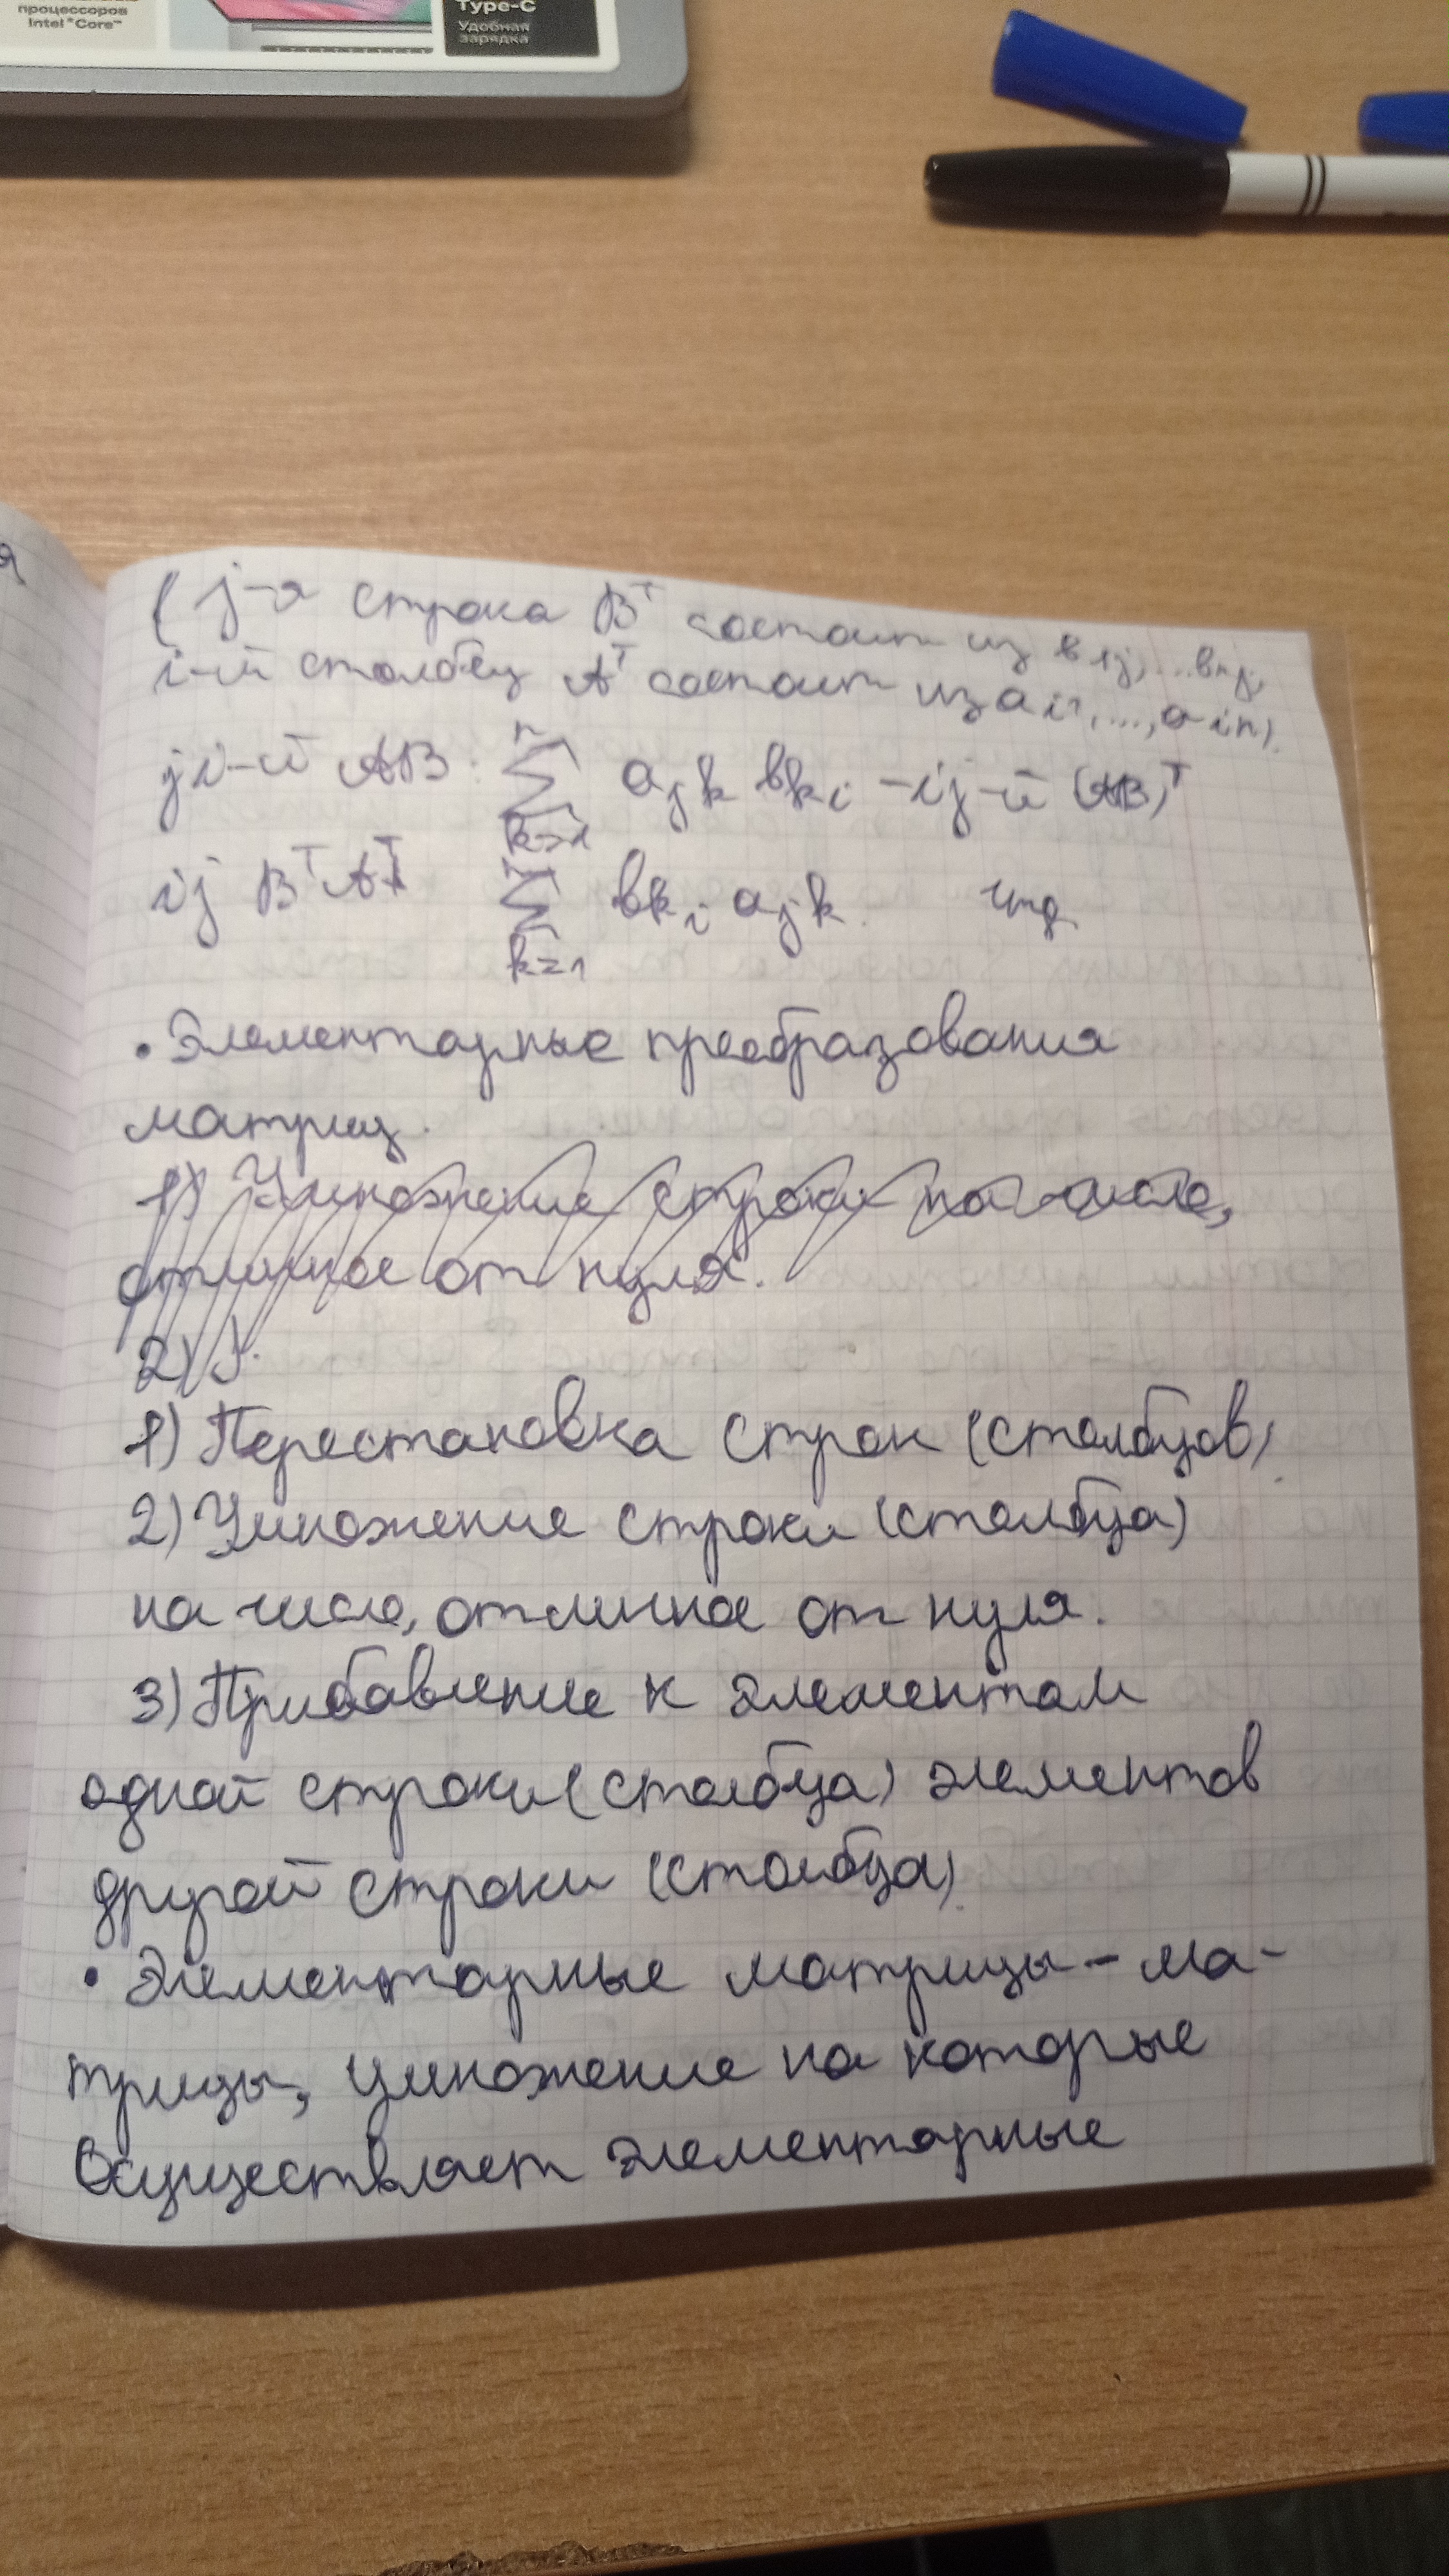 процессоров
Intel® Core™
Type-C
Удобная
зарядка
я
( j-я строка Bᵀ состоит из b1j, ...bnj,
i-й столбец Aᵀ состоит из ai1, ..., ain).
ji-й AB: ∑ₖ₌₁ⁿ ajk bki - ij-й (AB)ᵀ
ij BᵀAᵀ ∑ₖ₌₁ⁿ bki ajk. чтд
• Элементарные преобразования
матриц.
1) Умножение строки на число,
отличное от нуля.
2) У
1) Перестановка строк (столбцов).
2) Умножение строки (столбца)
на число, отличное от нуля.
3) Прибавление к элементам
одной строки (столбца) элементов
другой строки (столбца).
• Элементарные матрицы – ма-
трицы, умножение на которые
осуществляет элементарные